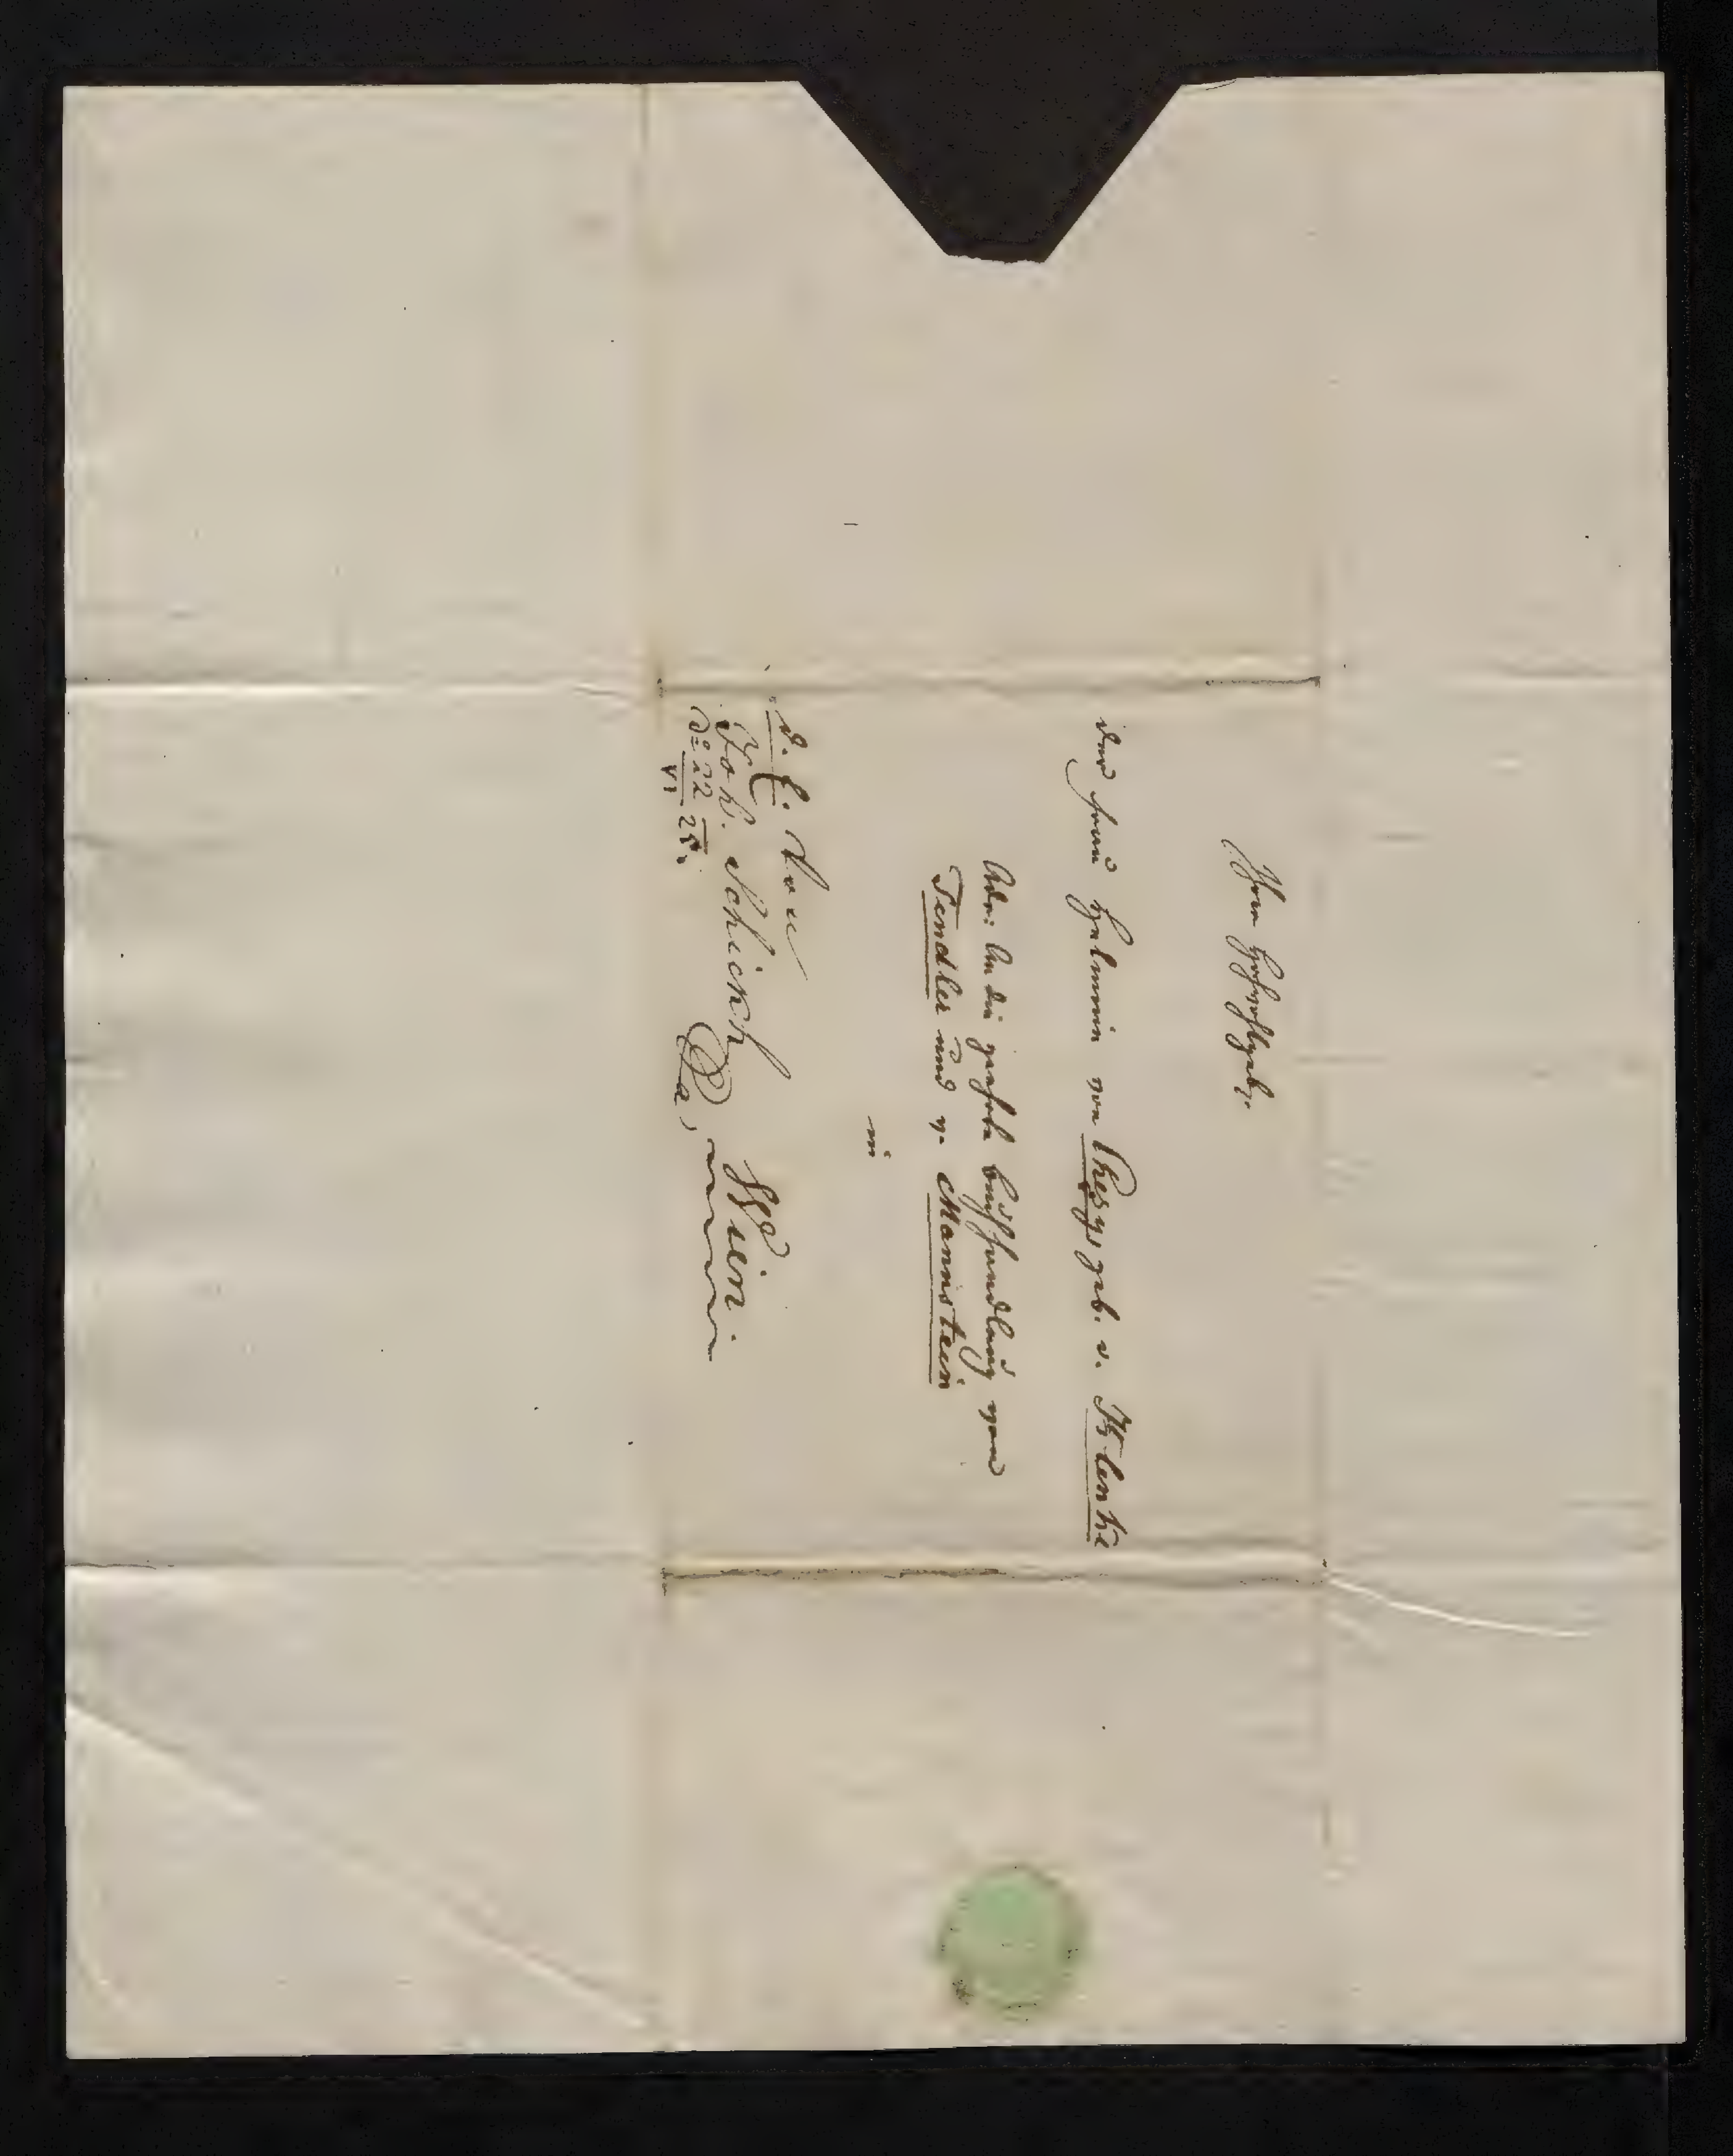 Ihro Hochwohlgeb.
der Frau Helmin von Chezy, geb. v. Klenke
Adr: An die geehrte Buchhandlung von
Tendler und v. Manstein
in
Wien.
d. E. von
Joh. Schickh